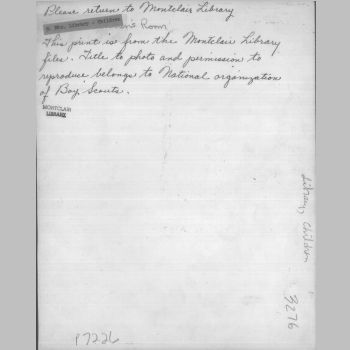 Please return to Montclair Library
Library - Children
n's Room
This print is from the Montclair Library
files. Title to photo and permission to
reproduce belongs to National organization
of Boy Scouts.
MONTCLAIR
LIBRARY
Library Children
9276
P7226